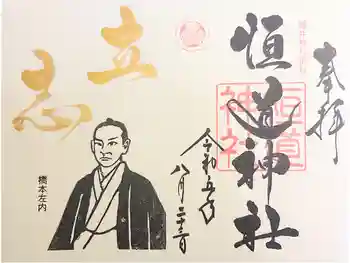 奉拝
恒道神社
恒道
神社
令和五年
八月二十二日
立志
橋本左内